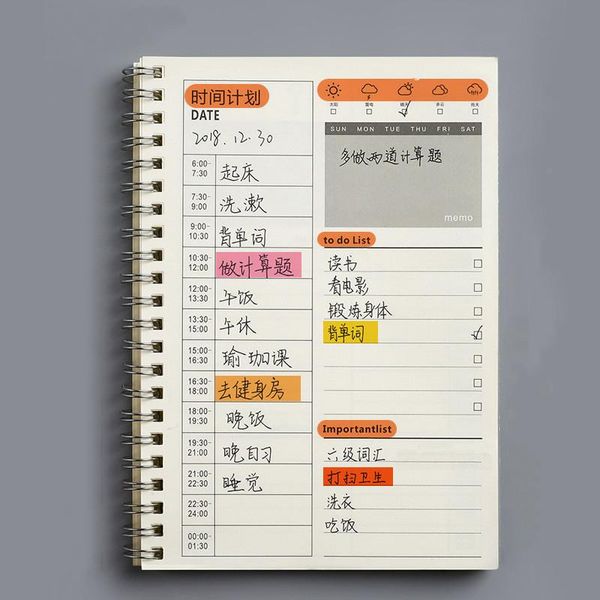 时间计划
DATE
2018.12.30
6:00-
7:30
起床
7:30-
9:00
洗漱
9:00-
10:30
背单词
10:30-
12:00
做计算题
12:00-
13:30
午饭
13:30-
15:00
午休
15:00-
16:30
瑜珈课
16:30-
18:00
去健身房
18:00-
19:30
晚饭
19:30-
21:00
晚自习
21:00-
22:30
睡觉
22:30-
24:00
00:00-
01:30
SUN MON TUE THU FRI SAT
多做两道计算题
memo
to do List
读书
看电影
锻炼身体
背单词
Importantlist
六级词汇
打扫卫生
洗衣
吃饭